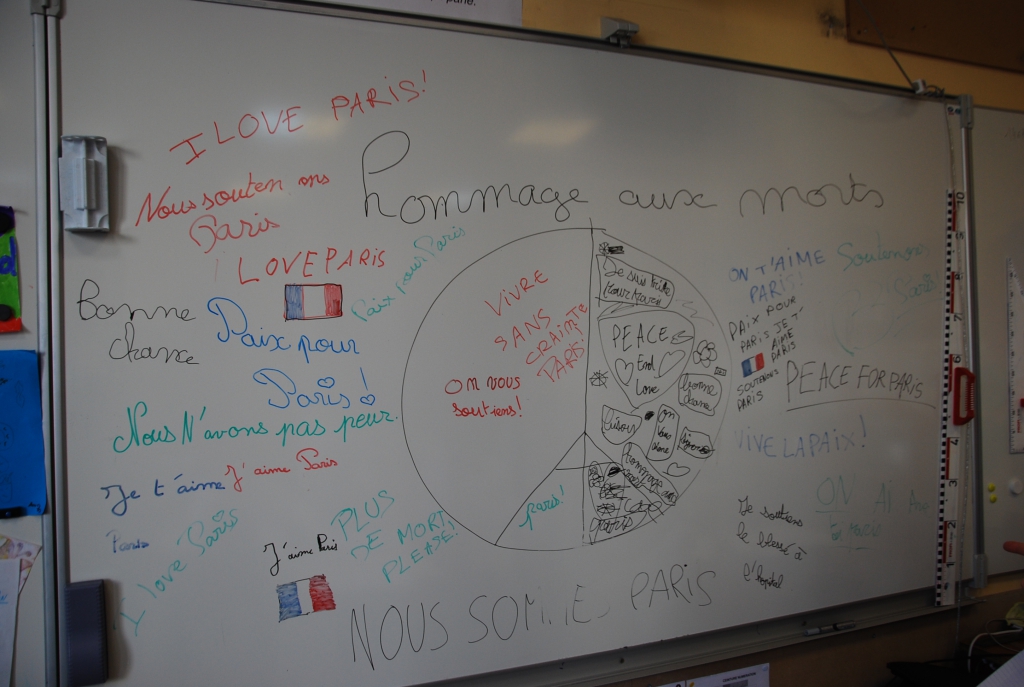 I LOVE PARIS!
Nous souten ons
Paris
hommage aux morts
LOVE PARIS
Paix pour Paris
Bonne
chance
Paix pour
Paris!
Nous N'avons pas peur
Je t'aime
Paris
J'aime Paris
I love Paris
J'aime Paris
PLUS
DE MORT
PLEASE!
NOUS SOMMES PARIS
VIVRE
SANS
CRAINTE
PARIS
ON vous
soutiens!
Paris!
Je suis triste
pour
PEACE
End
Love
bonne
chance
bisous
On
vous
aime
hommage aux
Paris
ON T'AIME
PARIS!
Soutenons
Paris
PAIX POUR
PARIS JE T'
AIME
PARIS
SOUTENONS
PARIS
PEACE FOR PARIS
VIVE LA PAIX!
Je soutiens
le blessé à
l'hopital
ON